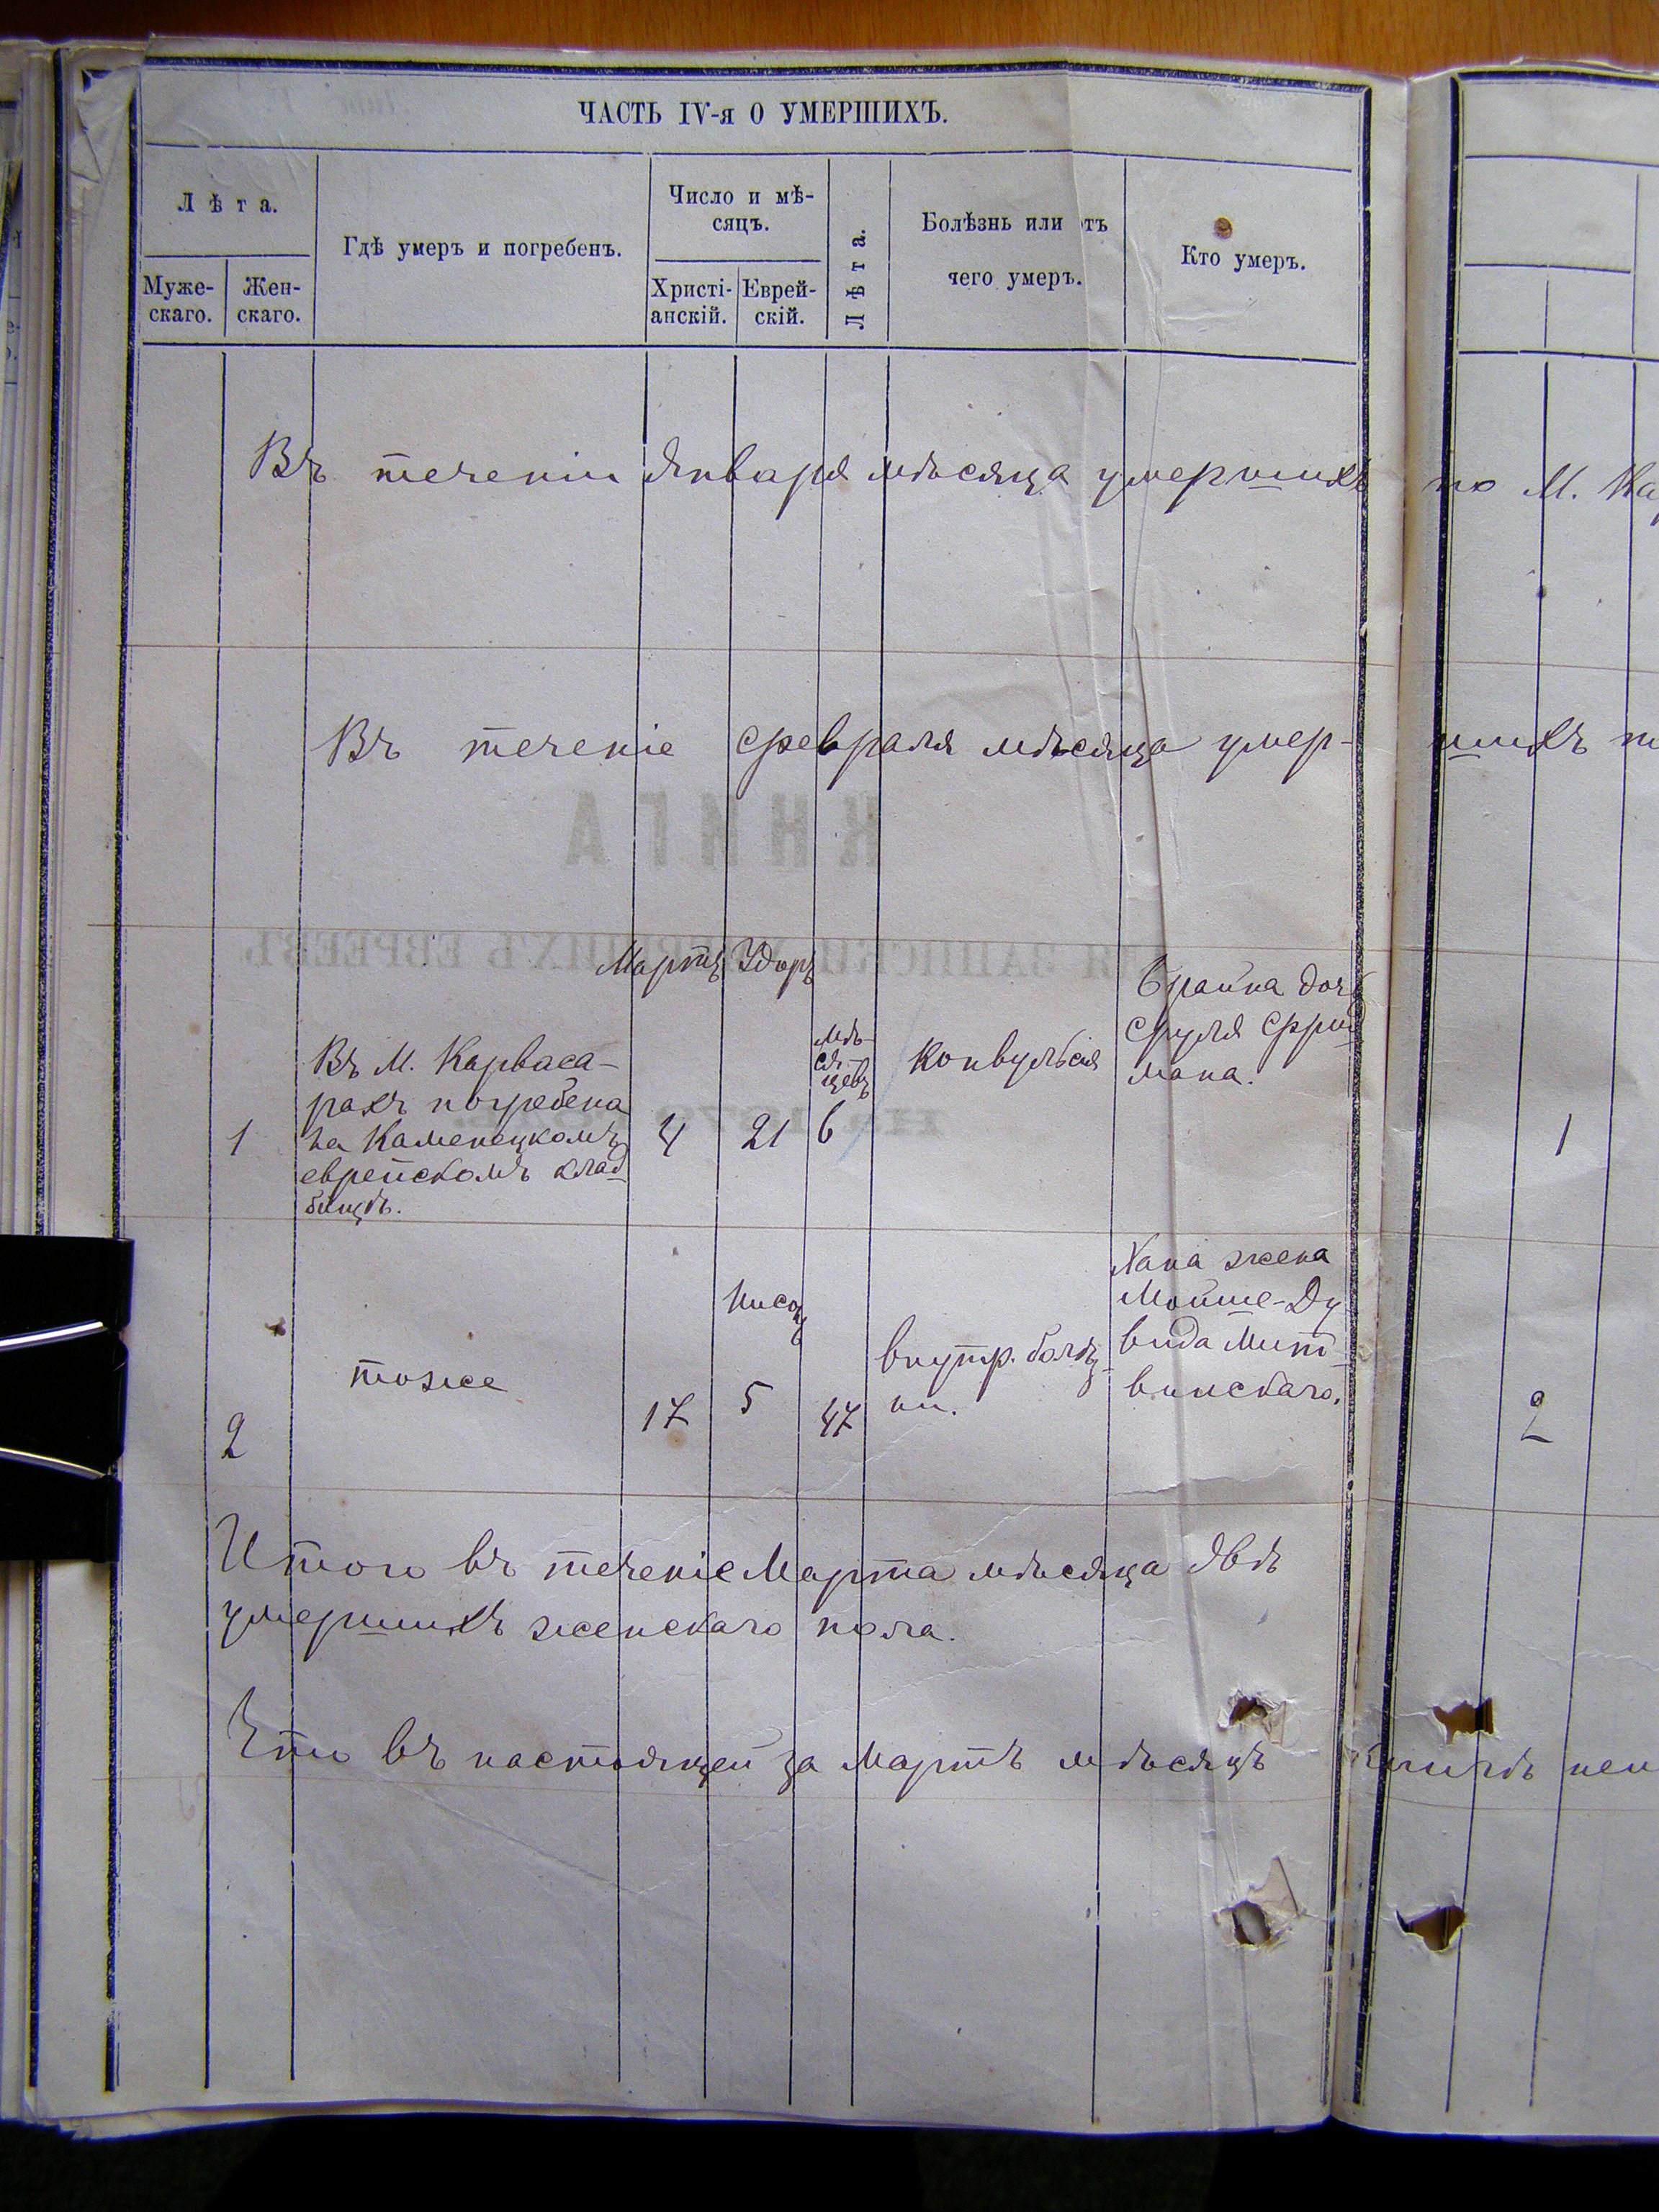 ЧАСТЬ IV-я О УМЕРШИХЪ.
Лѣта.
Муже-
скаго.
Жен-
скаго.
Гдѣ умеръ и погребенъ.
Число и мѣ-
сяцъ.
Христі-
анскій.
Еврей-
скій.
Лѣта.
Болѣзнь или отъ
чего умеръ.
Кто умеръ.
Въ теченіи Января мѣсяца умершихъ по М. Ка
Въ теченіе февраля мѣсяца умер- шихъ
КНИГА
Мартъ
1
Въ М. Карваса-
рахъ погребена
на Каменецкомъ
еврейскомъ клад-
бищѣ.
4
21
мѣ-
ся-
цевъ
6
Конвульсія
Брайна дочь
Сруля Фриш
мана.
1
2
тоже
17
Нисонъ
5
47
внутр. болѣз-
ни.
Хана жена
Мойше-Ду
вида Мит-
винскаго.
2
Итого въ теченіе Марта мѣсяца двѣ
умершихъ женскаго пола.
Что въ настоящей за Мартъ мѣсяцъ книгѣ